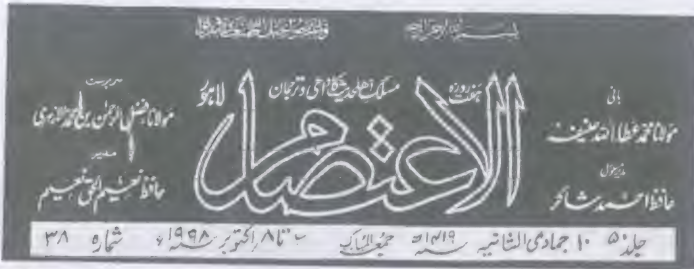 بسم اللہ الرحمن الرحیم
واعتصموا بحبل اللہ جمیعا ولا تفرقوا
ہفت روزہ
الاعتصام
لاہور
مسلک اہلحدیث کا داعی و ترجمان
بانی
مولانا محمد عطاء اللہ حنیف
مدیر مسئول
حافظ احمد شاکر
سرپرست
مولانا فضل الرحمن بن محمد الازہری
مدیر
حافظ نعیم الحق نعیم
جلد ۵۰ ۱۰ جمادی الثانیہ سنہ ۱۴۱۹ھ جمعۃ المبارک ۲ تا ۸ اکتوبر سنہ ۱۹۹۸ء شمارہ ۳۸